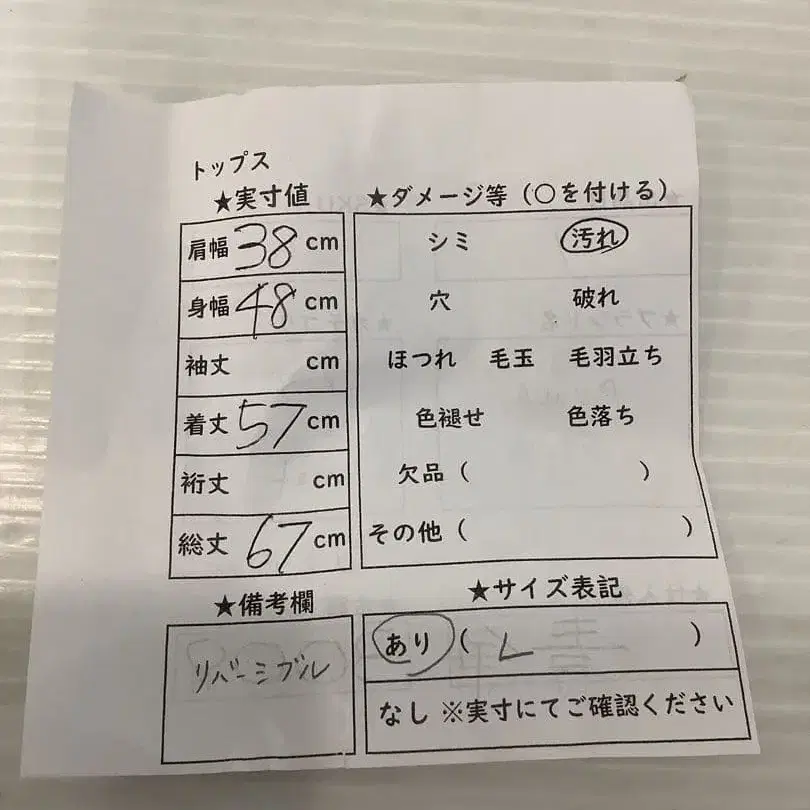 トップス
★実寸値
肩幅 38 cm
身幅 48 cm
袖丈 cm
着丈 57 cm
裄丈 cm
総丈 67 cm
★ダメージ等（○を付ける）
シミ 汚れ
穴 破れ
ほつれ 毛玉 毛羽立ち
色褪せ 色落ち
欠品（ ）
その他（ ）
★備考欄
リバーシブル
★サイズ表記
あり（ L ）
なし ※実寸にてご確認ください